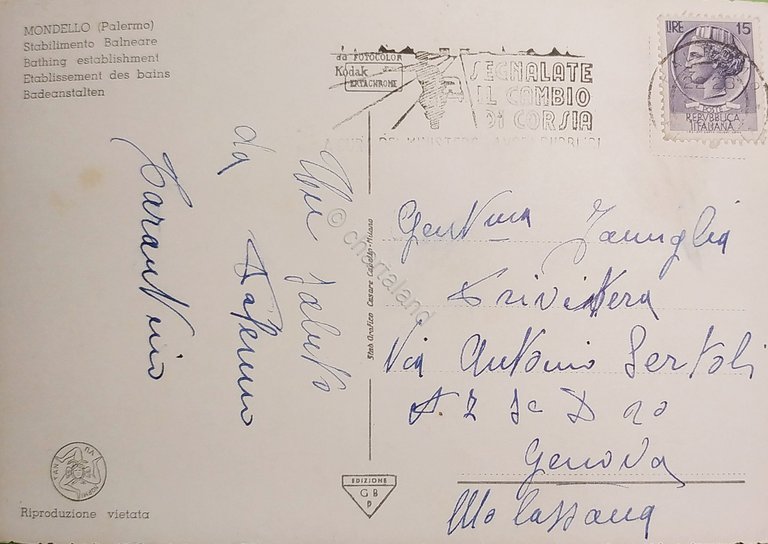 MONDELLO (Palermo)
Stabilimento Balneare
Bathing establishment
Etablissement des bains
Badeanstalten
da FOTOCOLOR
Kodak
EKTACHROME
SEGNALATE
IL CAMBIO
DI CORSIA
LIRE 15
POSTE
REPVBBLICA
ITALIANA
Un saluto
da Palermo
Tarantino
© chartaland
Stab. Grafico Cesare Capello-Milano
Gent.ma Famiglia
Trivisera
Via Antonio Sertoli
Genova
Molassana
EDIZIONE
G B
P
Riproduzione vietata